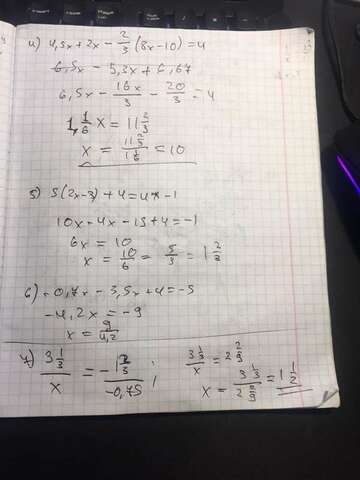 4) 4,5x + 2x - 2/3 (8x - 10) = 4
6,5x - 5,3x + 6,67
6,5x - 16x/3 - 20/3 = 4
1 1/6 x = 11 2/3
x = 11 2/3 / 1 1/6 = 10
5) 5(2x-3) + 4 = 4x - 1
10x - 4x - 15 + 4 = -1
6x = 10
x = 10/6 = 5/3 = 1 2/3
6) - 0,7x - 3,5x + 4 = -5
-4,2x = -9
x = 9/4,2
7) 3 1/3 / x = -1 2/3 / -0,75 ; 3 1/3 / x = 2 2/9
x = 3 1/3 / 2 2/9 = 1 1/2